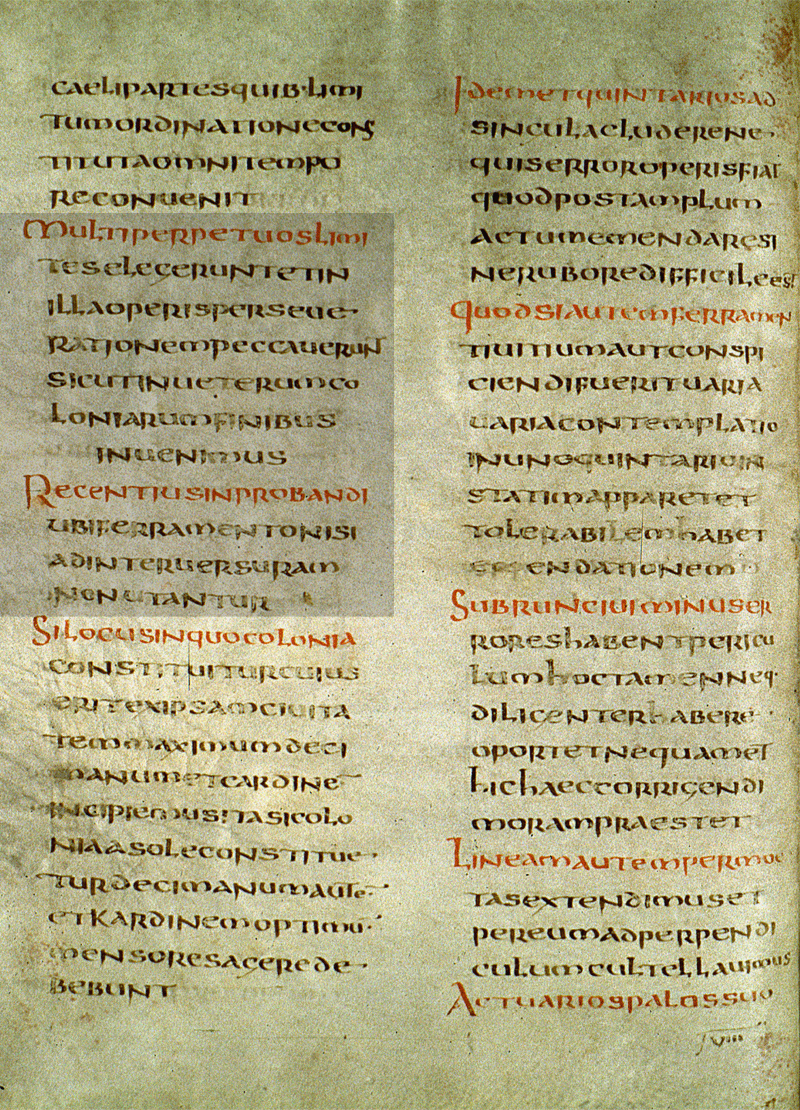 CAELIPARTESQUIB·LIMI
TUMORDINATIONECONS
TITUTAOMNITEMPO
RECONUENIT
MULTIPERPETUOSLIMI
TESELEGERUNTETIN
ILLAOPERISPERSEUE
RATIONEMPECCAUERUNT
SICUTINUETERUMCO
LONIARUMFINIBUS
INUENIMUS
RECENTIUSINPROBANDI
UBIFERRAMENTONISI
ADINTERUERSURAM
NONUTANTUR
SILOCUSINQUOCOLONIA
CONSTITUITURCUIUS
ERITEXIPSAMCIUITA
TEMMAXIMUMDECI
MANUMETCARDINE
INCIPIEMUSITASICOLO
NIAASOLECONSTITUE·
TURDECIMANUMAUTE·
ETKARDINEMOPTIMU·
MENSORESAGEREDE·
BEBUNT
IDEMETQUINTARIOSAD
SINGULACLUDERENE·
QUISERROROPERISFIAT
QUODPOSTAMPLUM
ACTUMEMENDARESI
NERUBOREDIFFICILEEST
QUODSIAUTEMFERRAMEN
TIUITIUMAUTCONSPI
CIENDIFUERITUARIA
UARIACONTEMPLATIO
INUNOQUINTARIOIN
STATIMAPPARETET
TOLERABILEMHABET
EMENDATIONEM
SUBRUNCIUIMINUSER
RORESHABENTPERICU
LUMHOCTAMENNEQ·
DILIGENTERHABERE·
OPORTETNEQUAMET
HICHAECCORRIGENDI
MORAMPRAESTET
LINEAMAUTEMPERMOE
TASEXTENDIMUSET
PEREUMADPERPENDI
CULUMCULTELLAUIMUS
ACTUARIOSPALOSSUO
VIIII